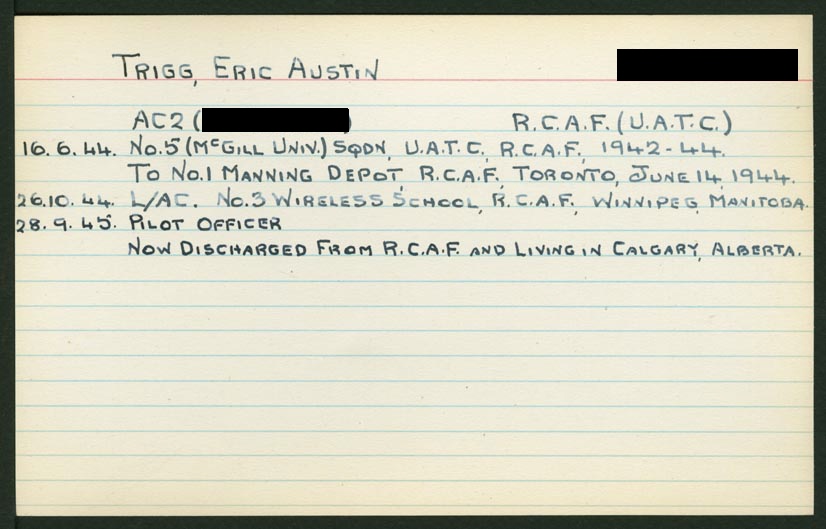 TRIGG, ERIC AUSTIN
AC2 ( ) R.C.A.F. (U.A.T.C.)
16.6.44. No.5 (McGILL UNIV.) SQDN, U.A.T.C, R.C.A.F, 1942-44.
TO No.1 MANNING DEPOT, R.C.A.F, TORONTO, JUNE 14, 1944.
26.10.44. L/AC. No.3 WIRELESS SCHOOL, R.C.A.F, WINNIPEG, MANITOBA.
28.9.45. PILOT OFFICER
NOW DISCHARGED FROM R.C.A.F. AND LIVING IN CALGARY, ALBERTA.